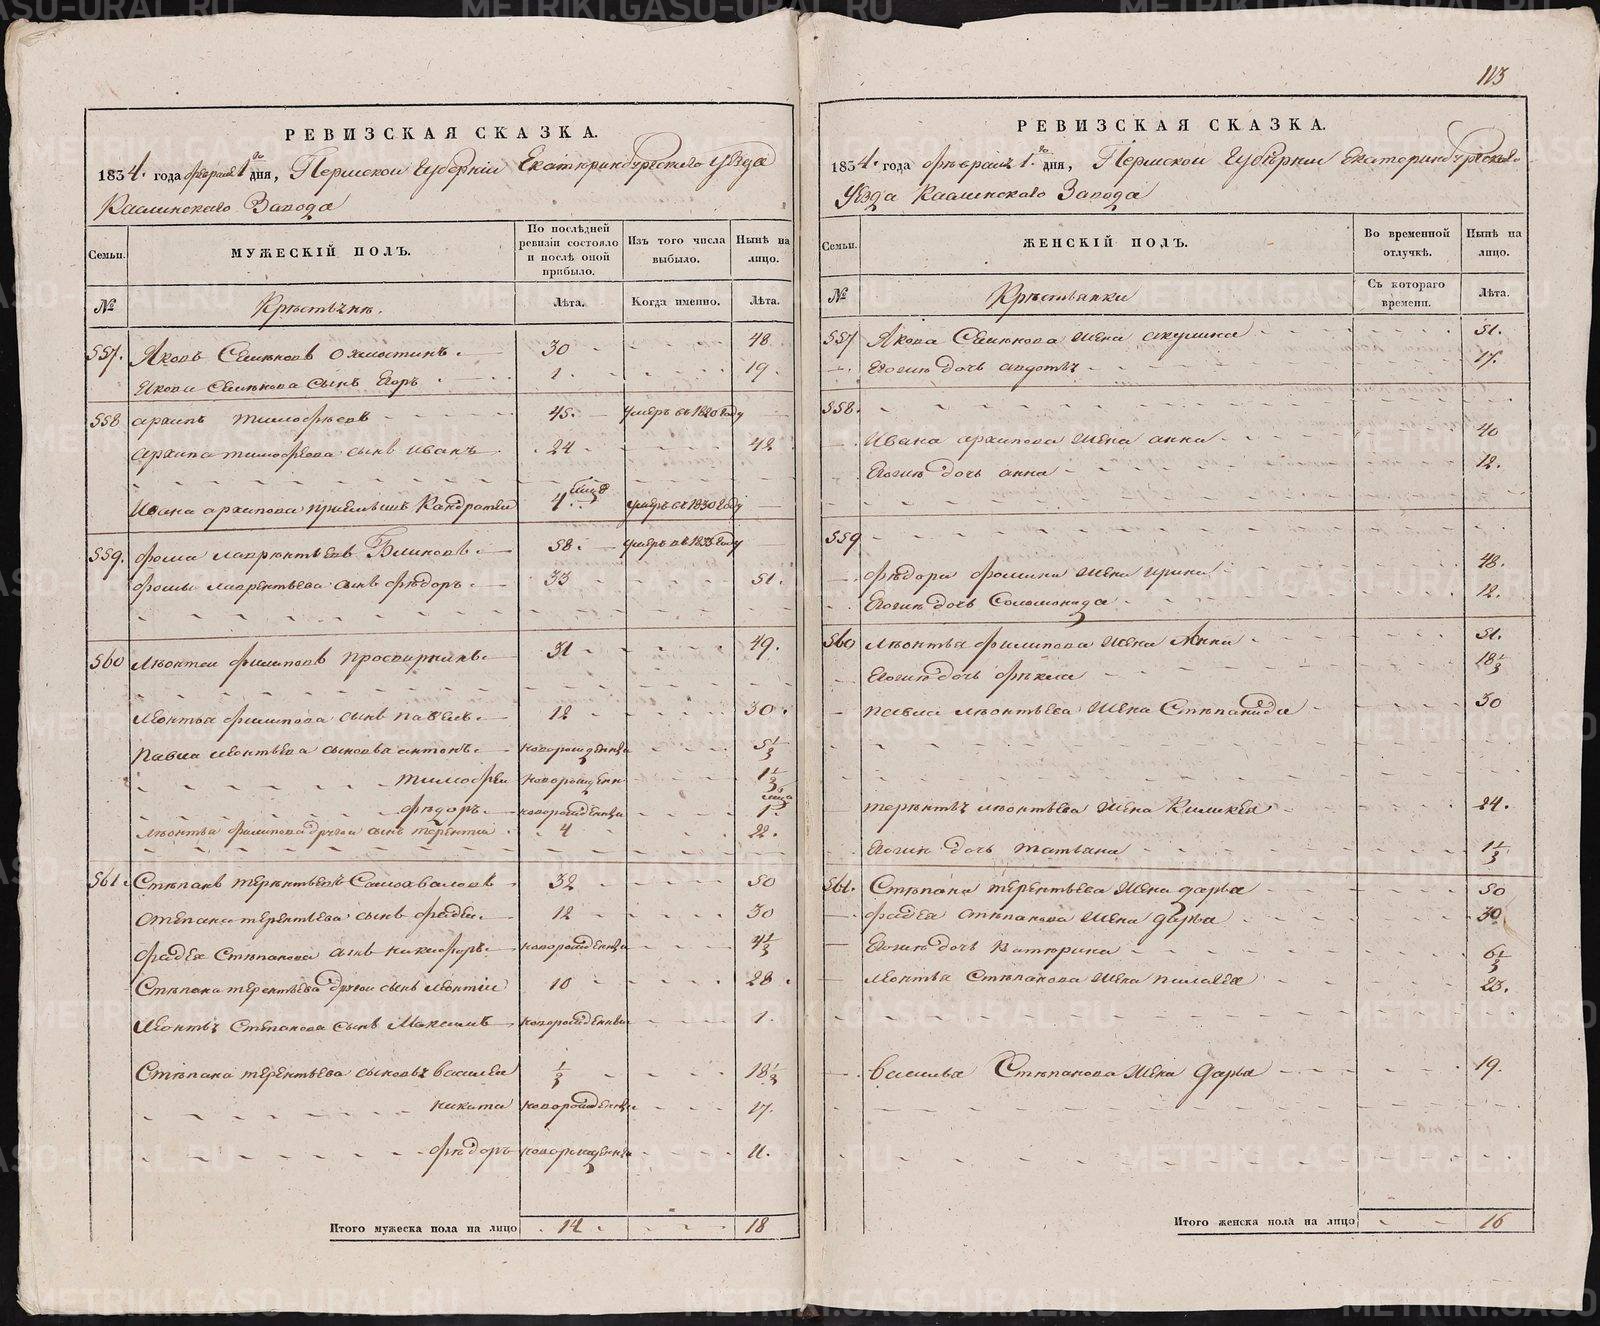 113
РЕВИЗСКАЯ СКАЗКА.
1834. года февраля 1го дня, Пермской Губернiи Екатеринбургскаго уѣзда
Каслинскаго Завода
Семьи.
МУЖЕСКІЙ ПОЛЪ.
По послѣдней ревизіи состояло и послѣ оной прибыло.
Изъ того числа выбыло.
Нынѣ на лицо.
№
Крѣстьянѣ.
Лѣта.
Когда именно.
Лѣта.
557. Яковъ Семѣновъ 30 48
Якова Семѣнова сынъ Егоръ 1. 19.
558 архипъ тимофѣевъ 45. умеръ въ 1820 году
архипа тимофѣева сынъ иванъ 24 42
Ивана архипова приемышъ Кандратей 4 умеръ въ 1830 году
559. фома лаврентьевъ Блиновъ 58. умеръ въ 1833 году
фомы лаврентьева сынъ фѣдоръ 33 51.
560 лѣонтеи филиповъ просвирнинъ 31 49.
леонтья филипова сынъ павелъ 12 30.
павла леонтьева сыновья антонъ новорожденны 5 1/3
тимофеи новорожденны 1 1/2
фѣдоръ новорожденны 1
лѣонтья филипова другои сынъ терентеи 4 22.
561. Стѣпанъ терѣнтьевъ Самохваловъ 32 50
степана терентьева сынъ фадеи 12 30
фадея Стѣпанова сынъ никифоръ новорожденны 4 1/3
Стѣпана терентьева другои сынъ леонтiи 10 28.
леонтья Степанова сынъ Максимъ новорожденны 1
Стѣпана терентьева сыновья василеи 1/3 18 1/3
никита новорожденны 17.
фѣдоръ новорожденны 11.
Итого мужеска пола на лицо 14 18
РЕВИЗСКАЯ СКАЗКА.
1834. года февраля 1го дня, Пермской Губернiи Екатеринбургскаго
Уѣзда Каслинскаго Завода
Семьи.
ЖЕНСКІЙ ПОЛЪ.
Во временной отлучкѣ.
Нынѣ на лицо.
№
Крѣстьянки
Съ котораго времени.
Лѣта.
557 Якова Семѣнова жена акулина 51.
Егоже дочь авдотья 17.
558.
Ивана архипова жена анна 40
Егоже дочь анна 12.
559
фѣдора фомина жена ирина 48.
Егоже дочь Соломонида 12.
560 лѣонтья филипова жена Анна 51.
Егоже дочь фѣкла 18 1/3
павла лѣонтьева жена Стѣпанида 30
терѣнтья лѣонтьева жена Киликея 24.
Егоже дочь татьяна 1 1/3
561. Стѣпана терентьева жена дарья 50
фадея стѣпанова жена дарья 30
Егоже дочь Катерина 6 1/3
леонтья Стѣпанова жена пилагея 23.
василья Стѣпанова жена дарья 19.
Итого женска пола на лицо 16
METRIKI.GASO-URAL.RU